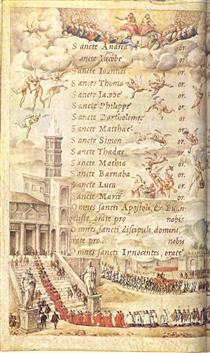 Sancte Andrea or.
Sancte Jacobe or.
Sancte Joannes or.
Sancte Thoma or.
Sancte Jacobe or.
Sancte Philippe or.
Sancte Bartholomee or.
Sancte Matthaee or.
Sancte Simon or.
Sancte Thadaee or.
Sancte Mathia or.
Sancte Barnaba or.
Sancte Luca or.
Sancte Marce or.
Omnes sancti Apostoli, & Euan
gelistae, orate pro nobis.
Omnes sancti discipuli domini,
orate pro nobis
Omnes sancti Innocentes, orate